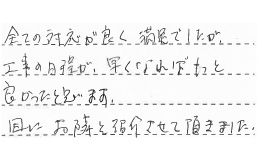 全ての対応が良く満足でしたが、
工事の日程が、早くなればもっと
良かったと思います。
目に お隣を紹介させて頂きました。